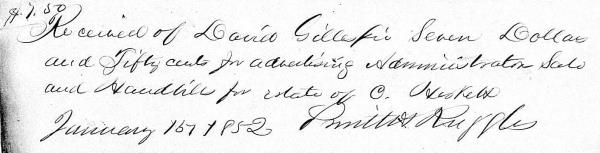 $7.50
Received of David Gillespie Seven Dollars
and Fifty cents for advertising Administrators Sale
and Handbills for estate of C. Haskett
January 15th 1852 Smith & Ruggles